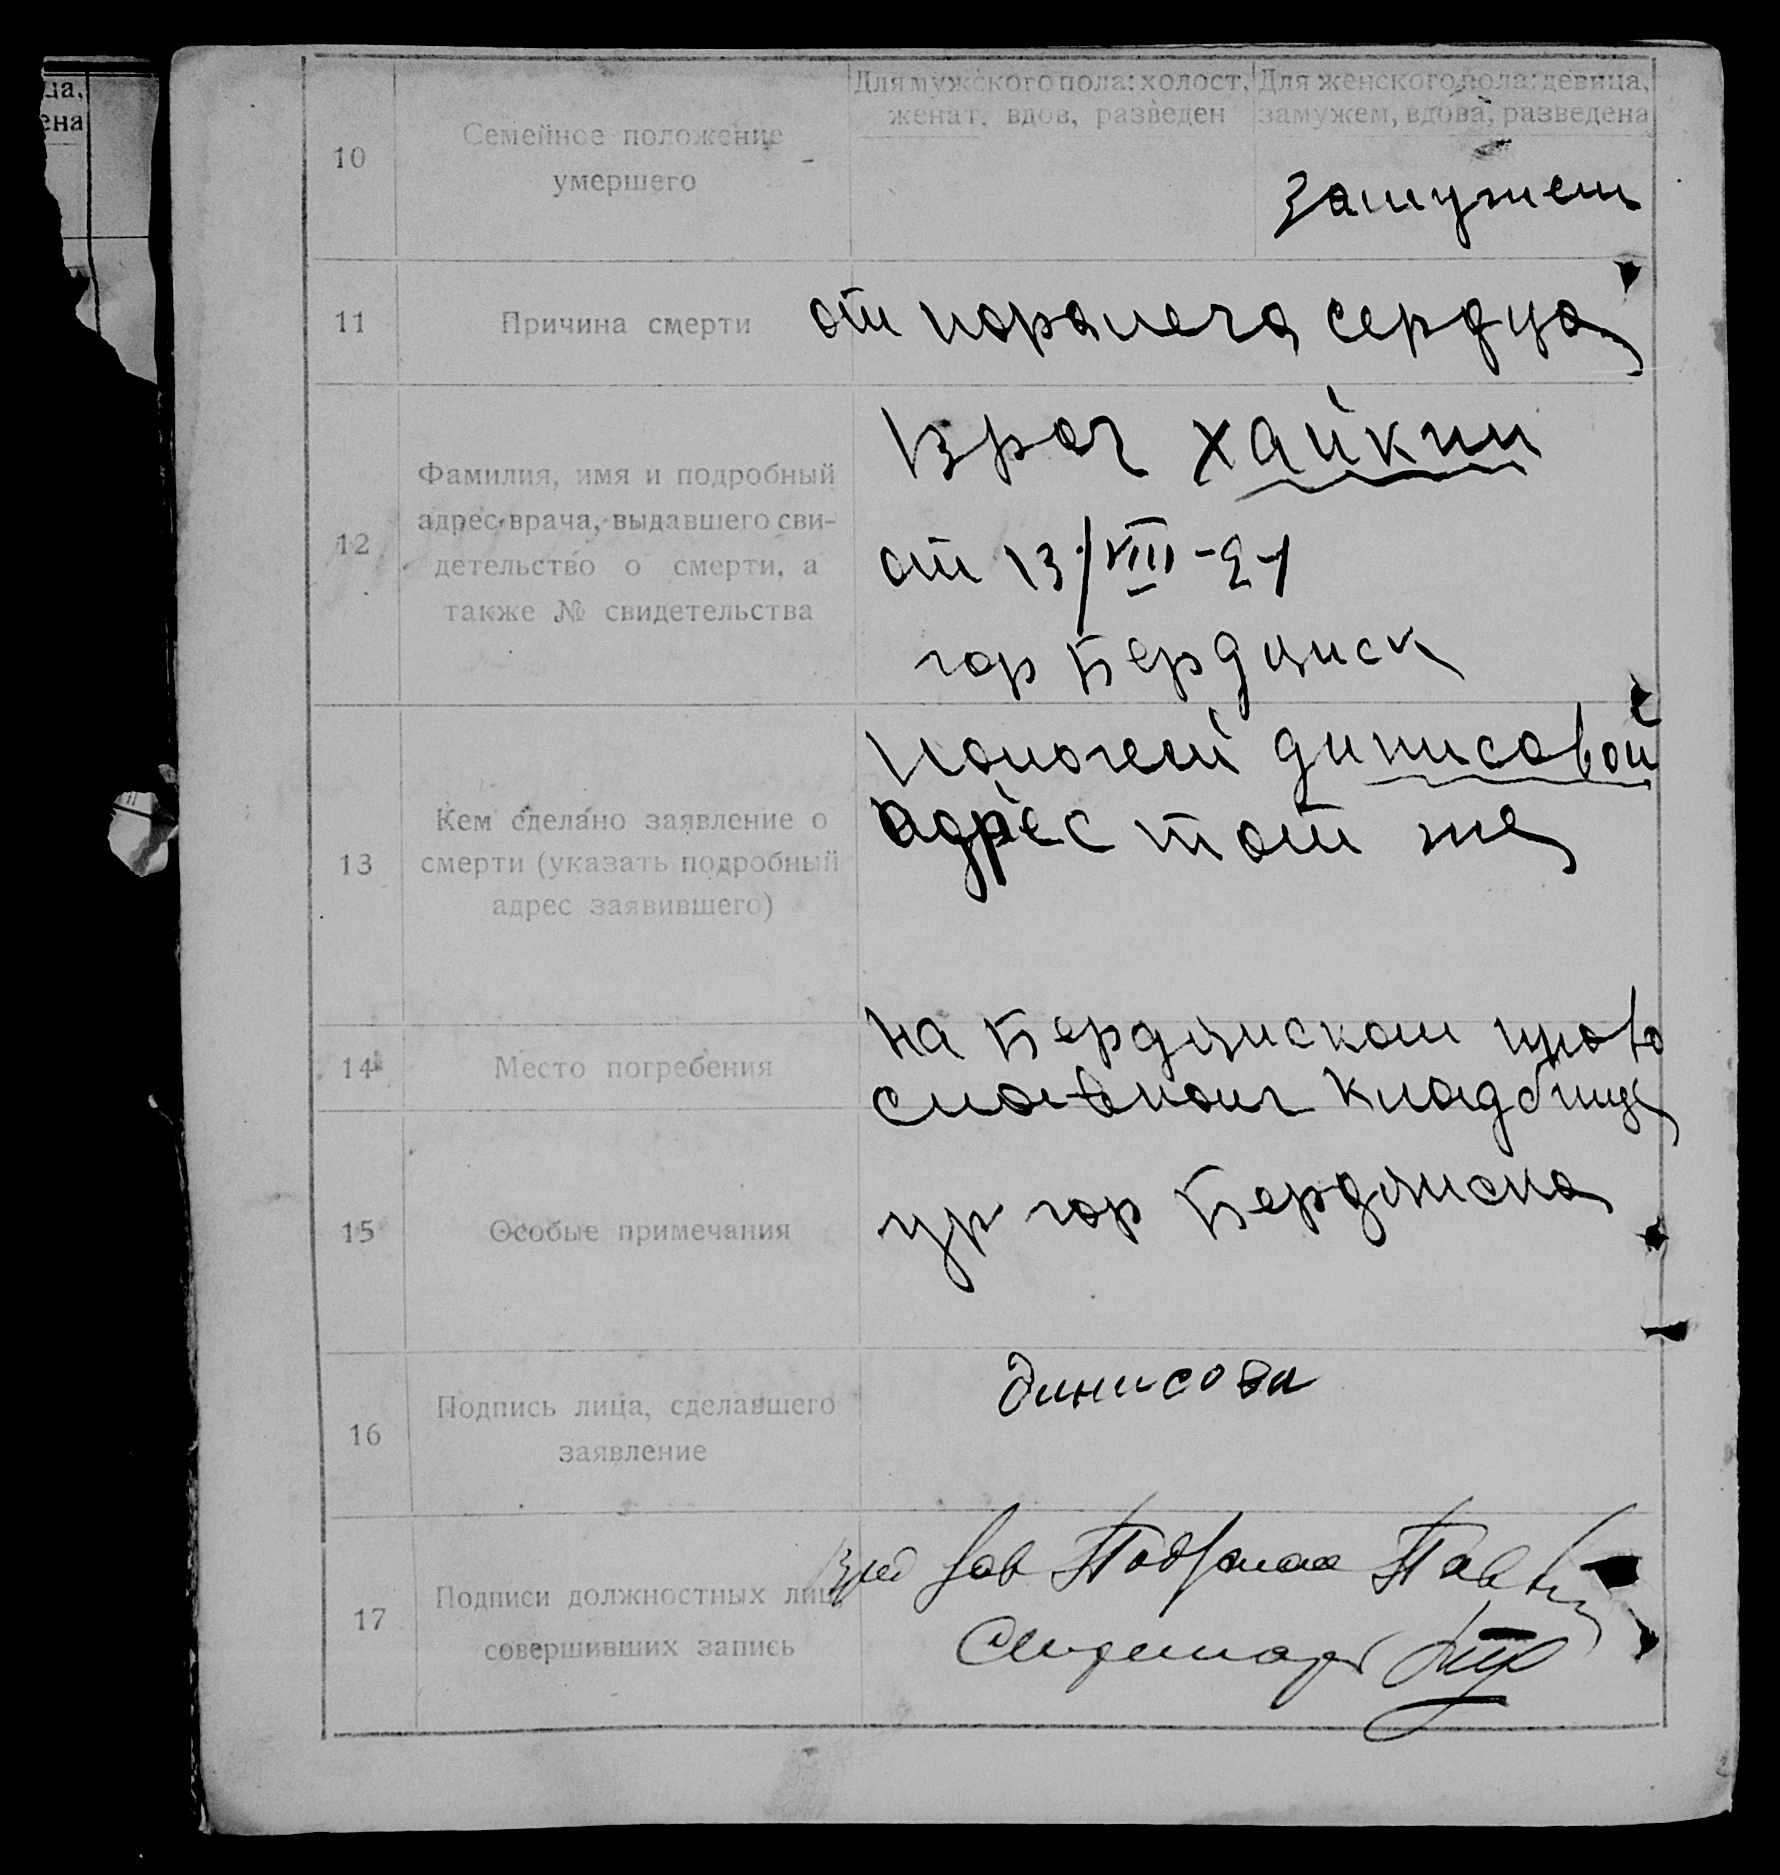 ца,
ена
10
Семейное положение
умершего
Для мужского пола: холост,
женат, вдов, разведен
Для женского пола: девица,
замужем, вдова, разведена
замужем
11
Причина смерти
от поралеча сердца
12
Фамилия, имя и подробный
адрес врача, выдавшего сви-
детельство о смерти, а
также № свидетельства
Врач Хайкин
от 13/VIII-21
гор Бердянск
13
Кем сделано заявление о
смерти (указать подробный
адрес заявившего)
Динисовой
адрес тот же
14
Место погребения
на Бердянском право
славном кладбище
15
Особые примечания
ур гор Бердянска
16
Подпись лица, сделавшего
заявление
Динисова
17
Подписи должностных лиц,
совершивших запись
Зав